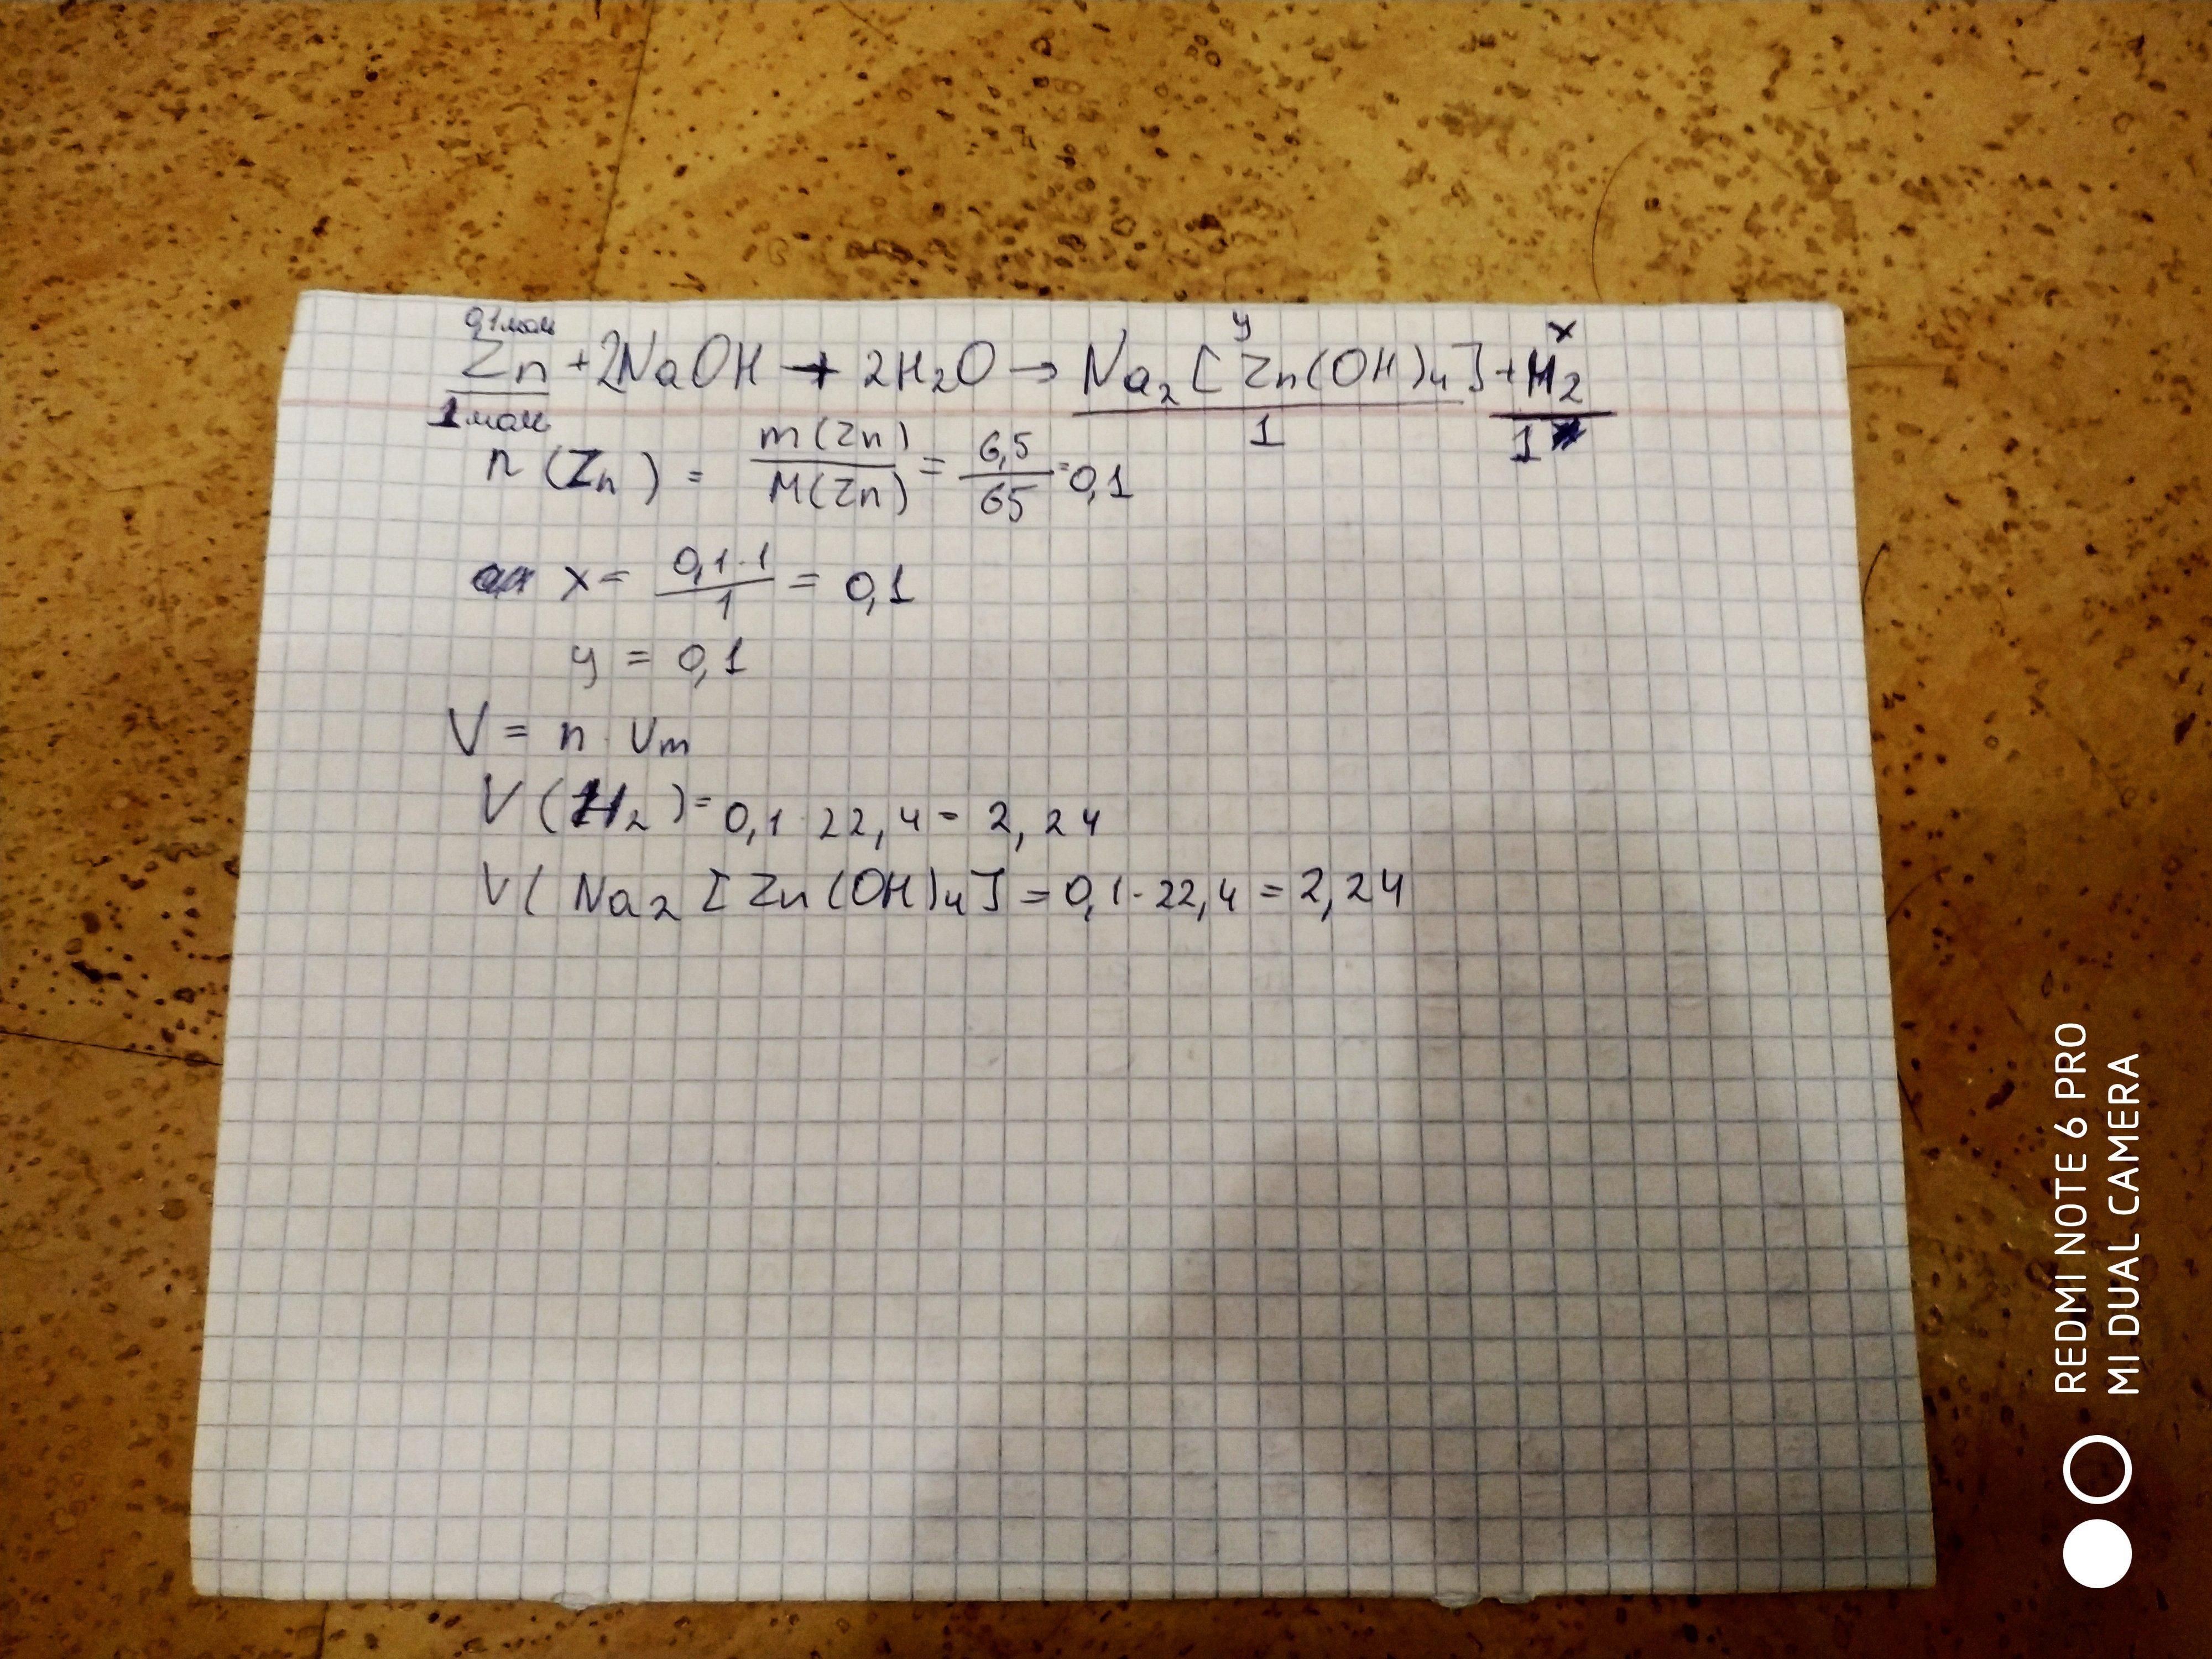 0,1 моль y x
Zn + 2NaOH + 2H₂O → Na₂[Zn(OH)₄] + H₂
1 моль 1 1
n(Zn) = m(Zn)/M(Zn) = 6,5/65 = 0,1
x = 0,1·1/1 = 0,1
y = 0,1
V = n · Vm
V(H₂) = 0,1 · 22,4 = 2,24
V(Na₂[Zn(OH)₄] = 0,1 · 22,4 = 2,24
REDMI NOTE 6 PRO
MI DUAL CAMERA